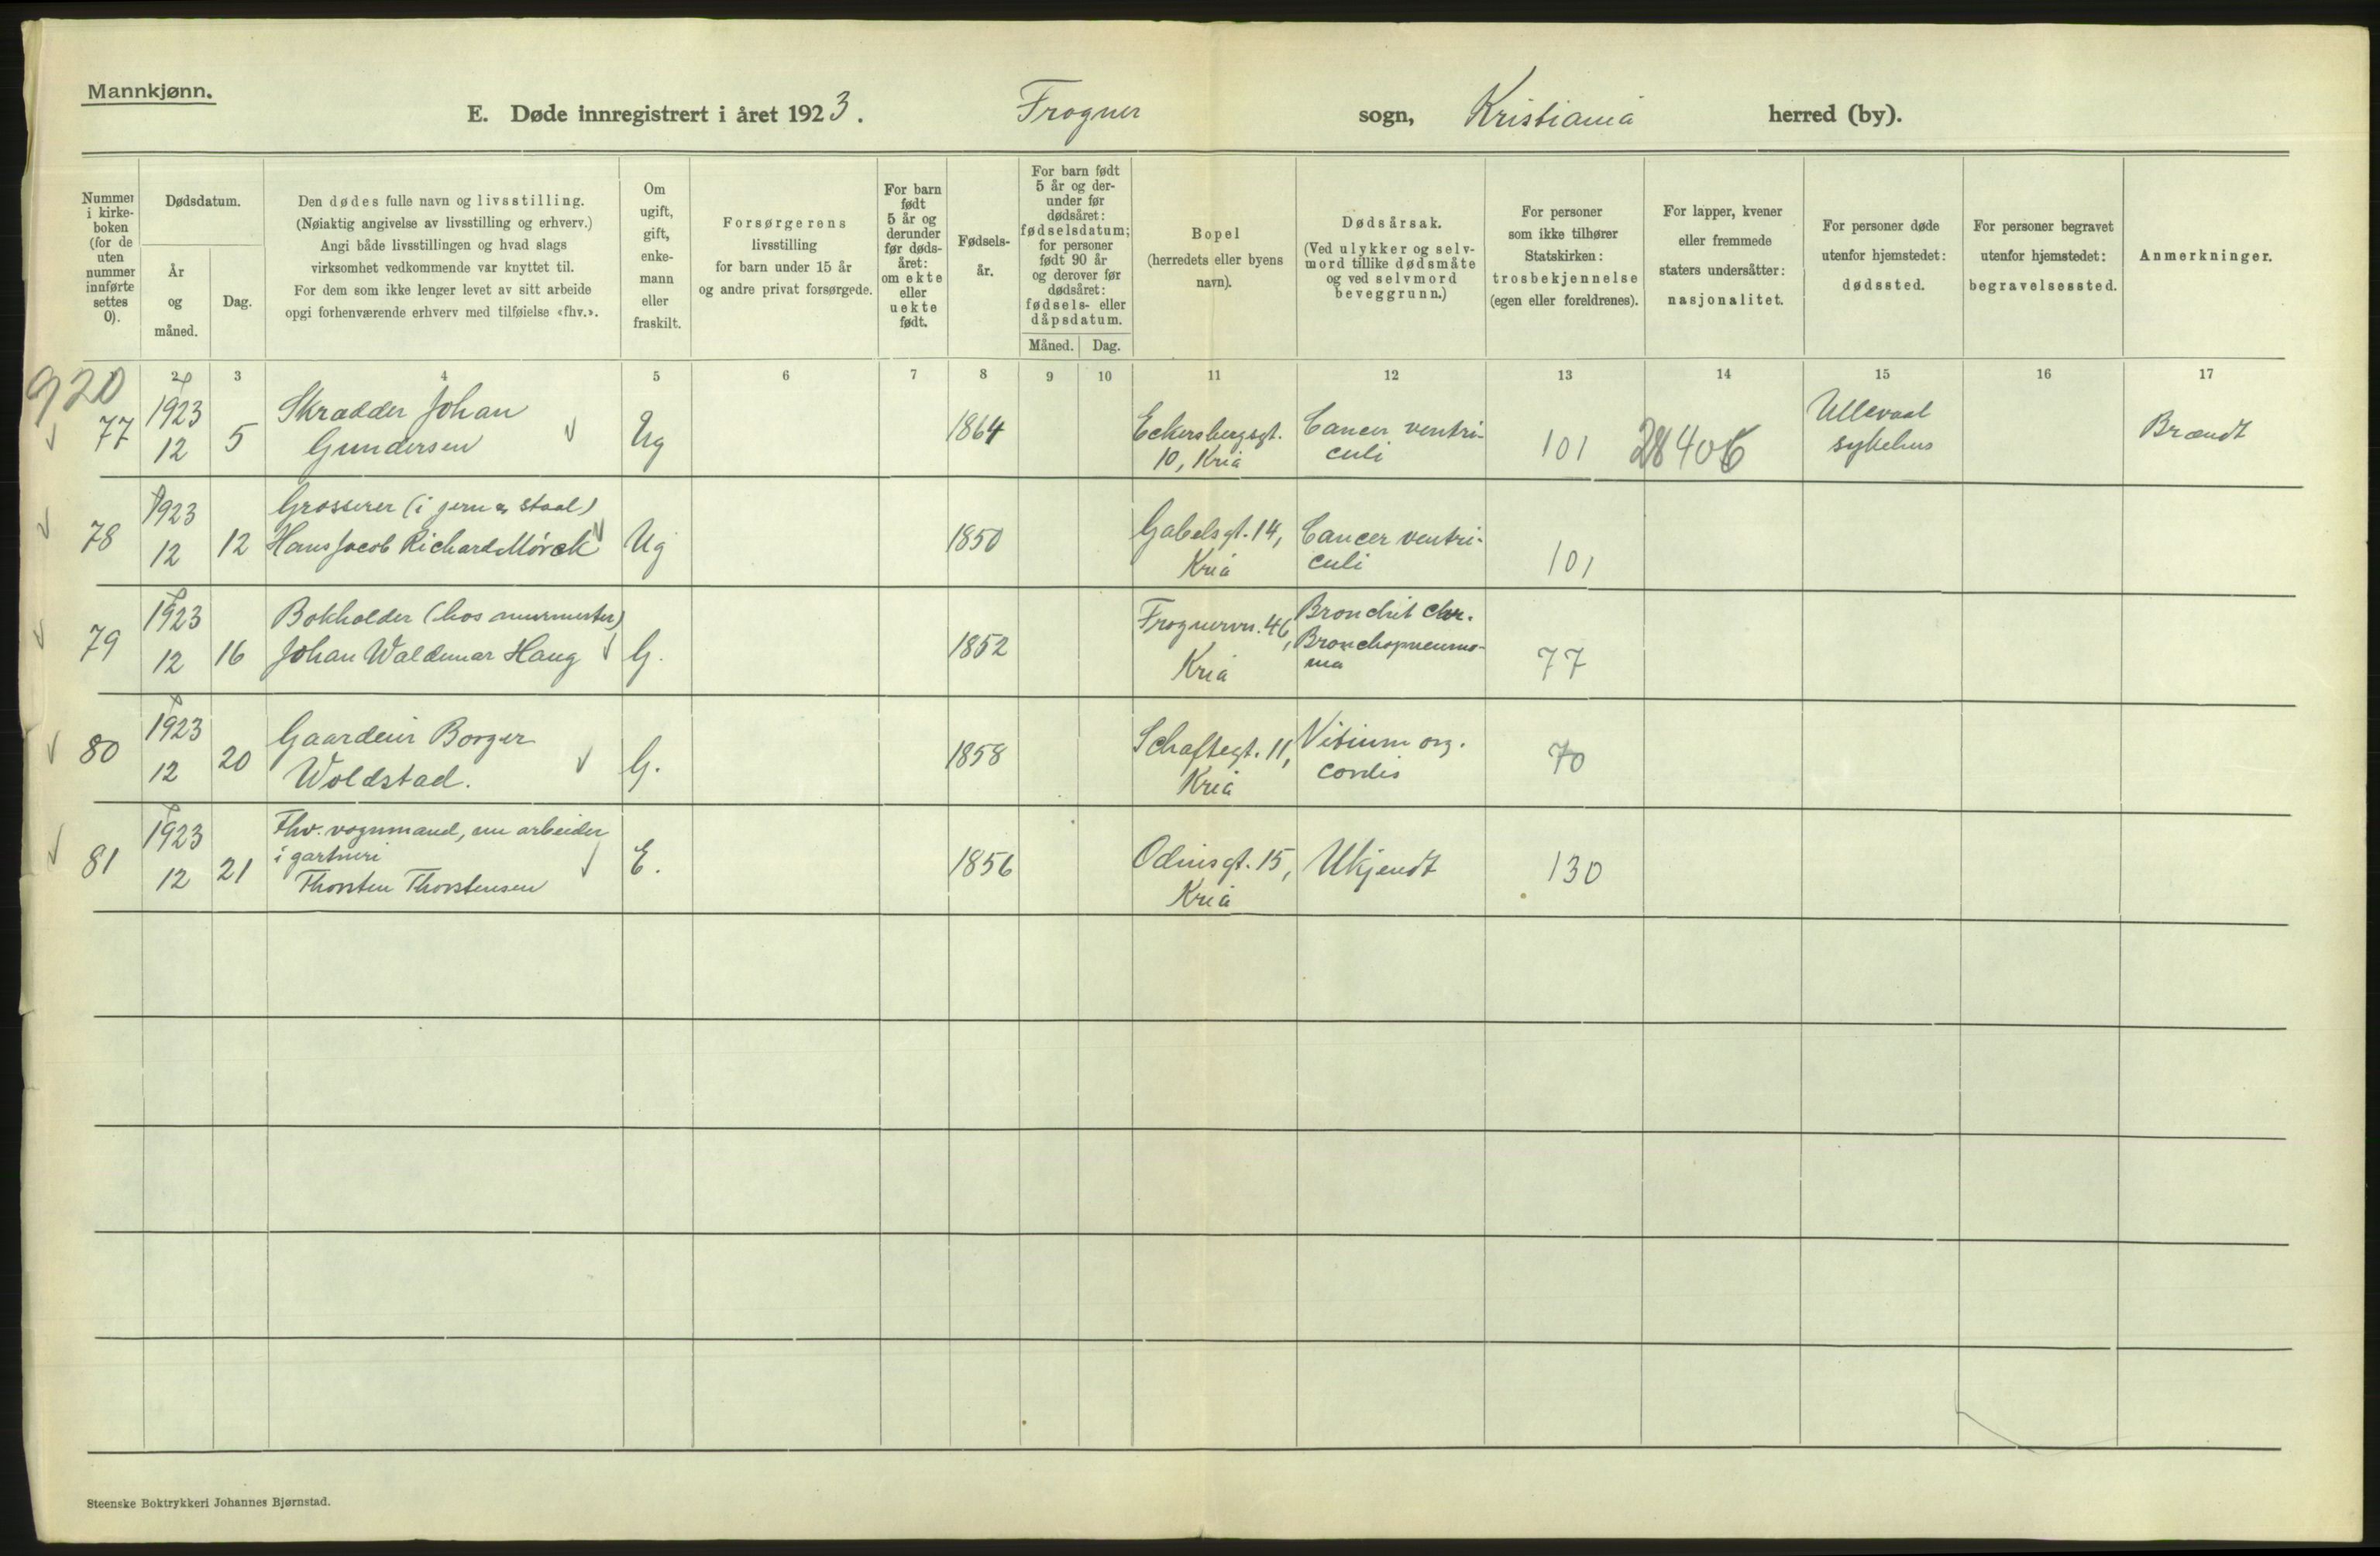 Mannkjønn.
E. Døde innregistrert i året 1923. Frogner sogn, Kristiania herred (by).
Nummer i kirke-boken (for de uten nummer innførte settes 0).
Dødsdatum.
År og måned.
Dag.
Den dødes fulle navn og livsstilling.
(Nøiaktig angivelse av livsstilling og erhverv.)
Angi både livsstillingen og hvad slags
virksomhet vedkommende var knyttet til.
For dem som ikke lenger levet av sitt arbeide
opgi forhenværende erhverv med tilføielse «fhv.».
Om ugift, gift, enke-mann eller fraskilt.
Forsørgerens
livsstilling
for barn under 15 år
og andre privat forsørgede.
For barn født 5 år og derunder før døds-året: om ekte eller uekte født.
Fødsels-år.
For barn født 5 år og der-under før dødsåret: fødselsdatum; for personer født 90 år og derover før dødsåret: fødsels- eller dåpsdatum.
Måned. Dag.
Bopel
(herredets eller byens
navn).
Dødsårsak.
(Ved ulykker og selv-
mord tillike dødsmåte
og ved selvmord
beveggrunn.)
For personer
som ikke tilhører
Statskirken:
trosbekjennelse
(egen eller foreldrenes).
For lapper, kvener
eller fremmede
staters undersåtter:
nasjonalitet.
For personer døde
utenfor hjemstedet:
dødssted.
For personer begravet
utenfor hjemstedet:
begravelsessted.
Anmerkninger.
2 3 4 5 6 7 8 9 10 11 12 13 14 15 16 17
920
77 1923 12 5 Skrædder Johan
Gundersen Ug 1864 Eckersbergsgt.
10, Kria Cancer ventri-
culi 101 28406 Ullevaal
sykehus Brændt
78 1923 12 12 Grosserer (i jern og staal)
Hans Jacob Richard Mörch Ug 1850 Gabelsgt. 14,
Kria Cancer ventri-
culi 101
79 1923 12 16 Bokholder (hos murmester)
Johan Waldemar Haug G. 1852 Frognervn. 46,
Kria Bronchit chr.
Bronchopneumo-
nia 77
80 1923 12 20 Gaardeier Borger
Woldstad. G. 1858 Schaftegt. 11,
Kria Vitium org.
cordis 70
81 1923 12 21 Fhv. vognmand, nu arbeider
i gartneri
Thorsten Thorstensen E. 1856 Odinsgt. 15,
Kria Ukjendt 130
Steenske Boktrykkeri Johannes Bjørnstad.